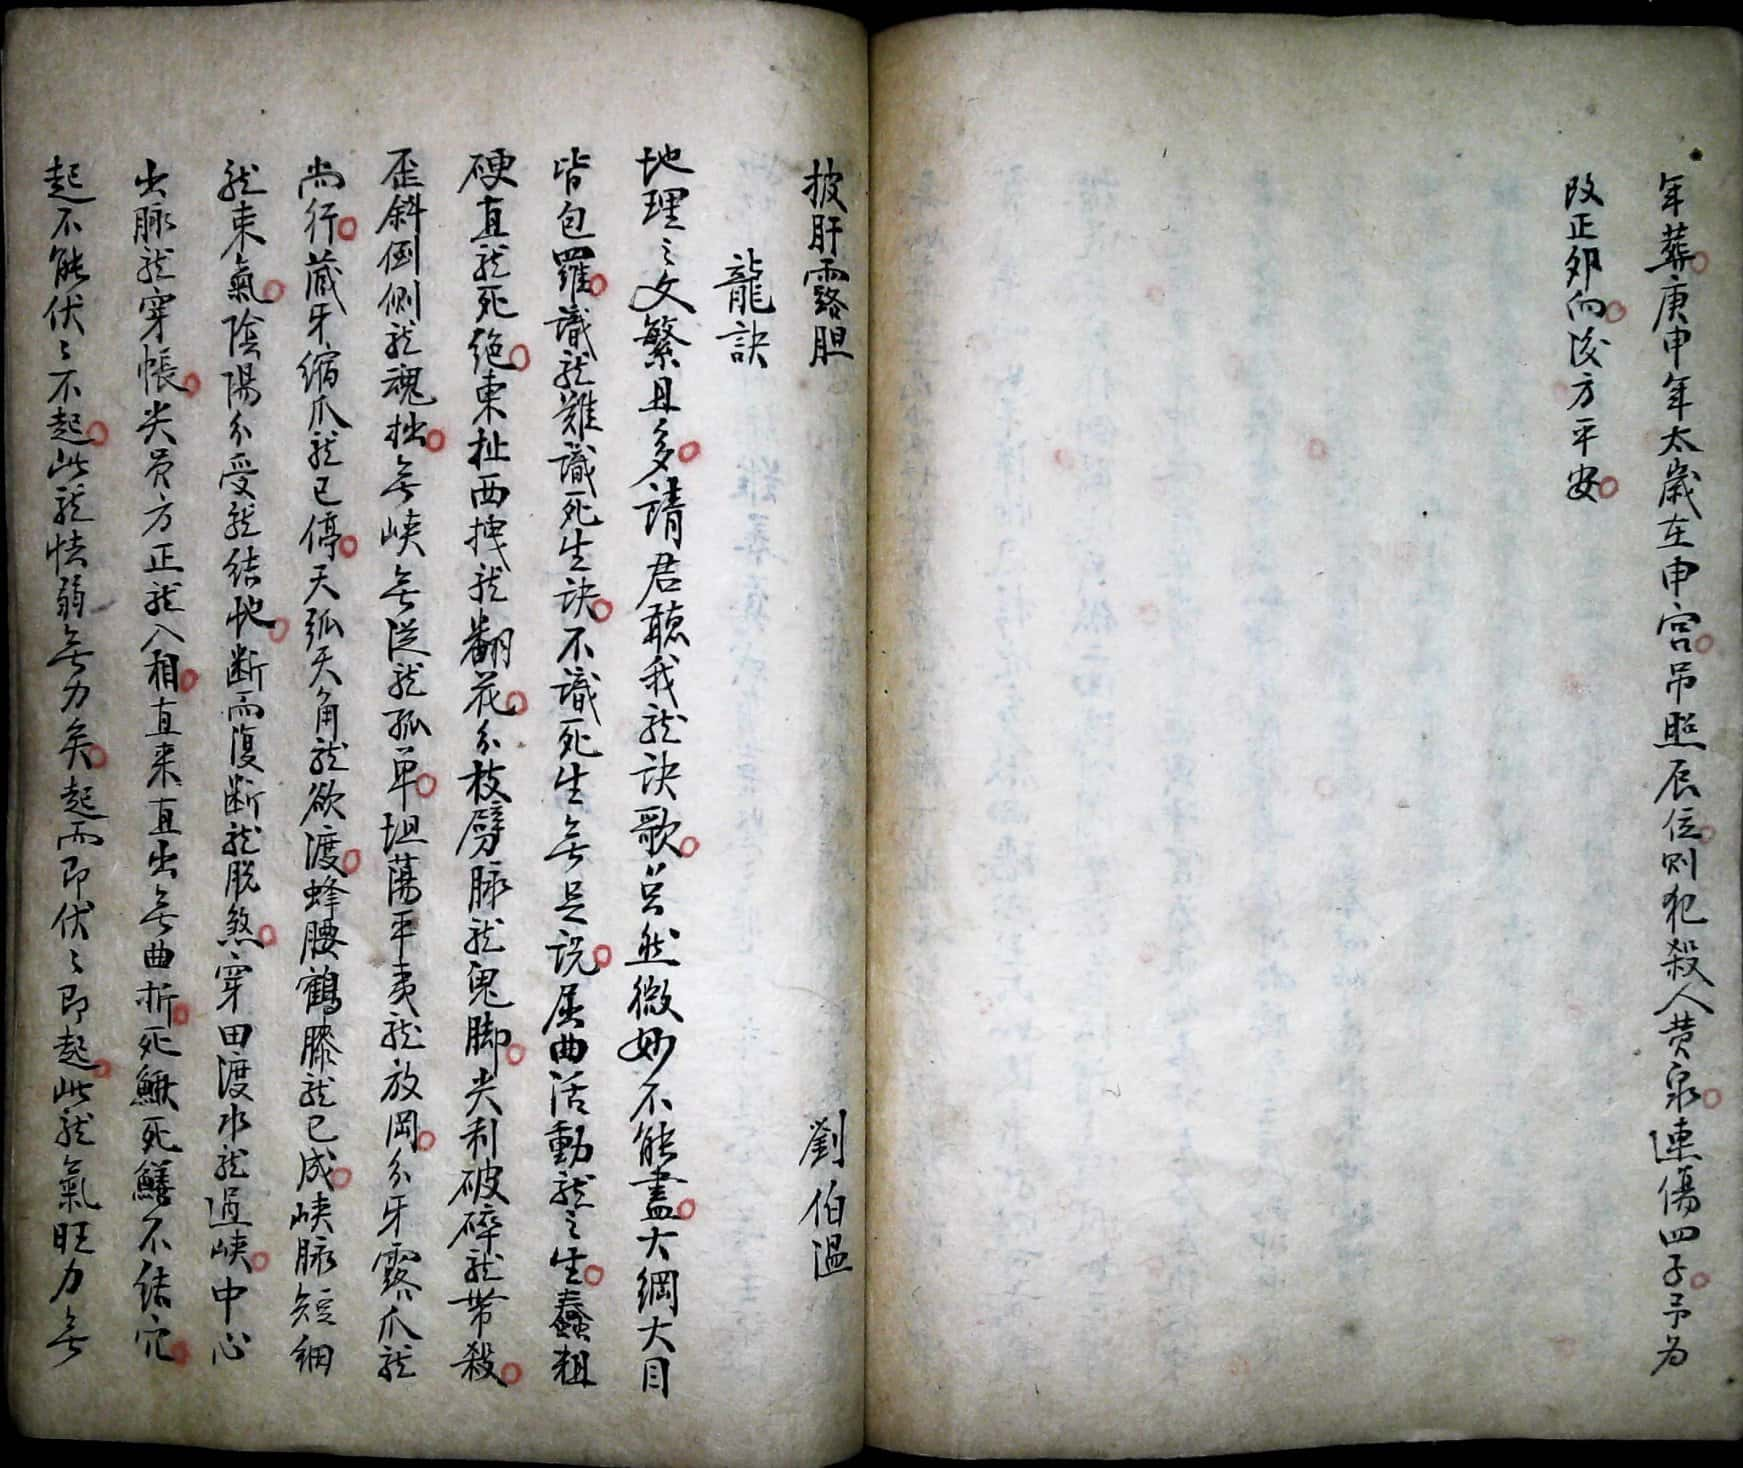 年葬庚申年太歲在申宮吊照辰位則犯殺人黄泉連傷四子予为
改正卯向後方平安
披肝露胆 劉伯溫
龍訣
地理之文繁且多請君聴我龍訣歌只然微妙不能盡大綱大目
皆包羅識龍難識死生訣不識死生無足説屈曲活動龍之生蠢粗
硬直龍死絶東扯西拽龍翻花分枝劈脉龍鬼脚尖利破碎龍带殺
歪斜倒側龍魂拙無峽無從龍孤单坦蕩平夷龍放岡分牙露爪龍
尚行藏牙縮爪龍已停天弧天角龍欲渡蜂腰鶴膝龍已成峽脉短細
龍束氣陰陽分受龍结地断而復断龍脱煞穿田渡水龍過峽中心
出脉龍穿帳尖員方正龍入相直来直出無曲折死鰍死鱔不结穴
起不能伏〻不起此龍怯弱無力矣起而即伏〻即起此龍氣旺力無